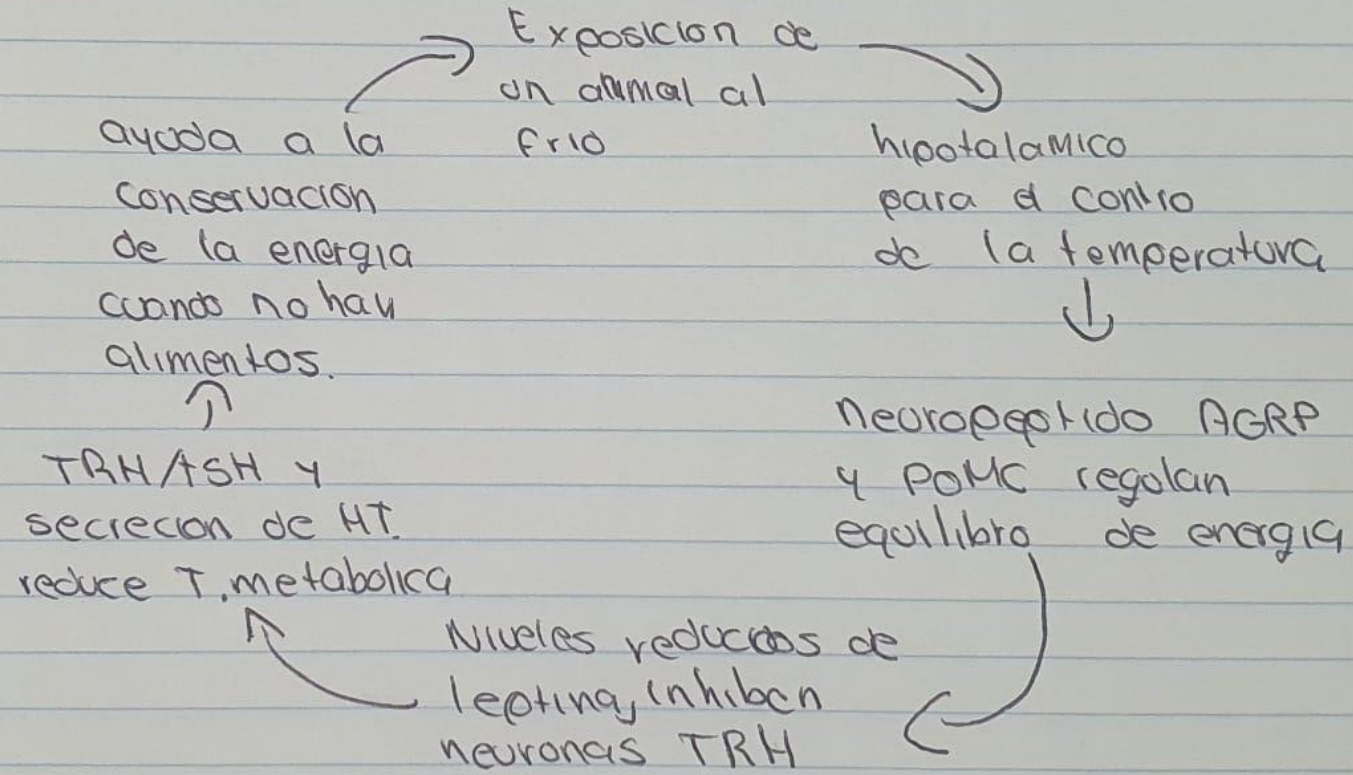 Exposicion de
un animal al
frio
hipotalamico
para el contro
de la temperatura
neuropeptido AGRP
y POMC regulan
equilibro de energia
Niveles reducidos de
leptina, inhiben
neuronas TRH
TRH/TSH y
secrecion de HT.
reduce T. metabolica
ayuda a la
conservacion
de la energia
cuando no hay
alimentos.